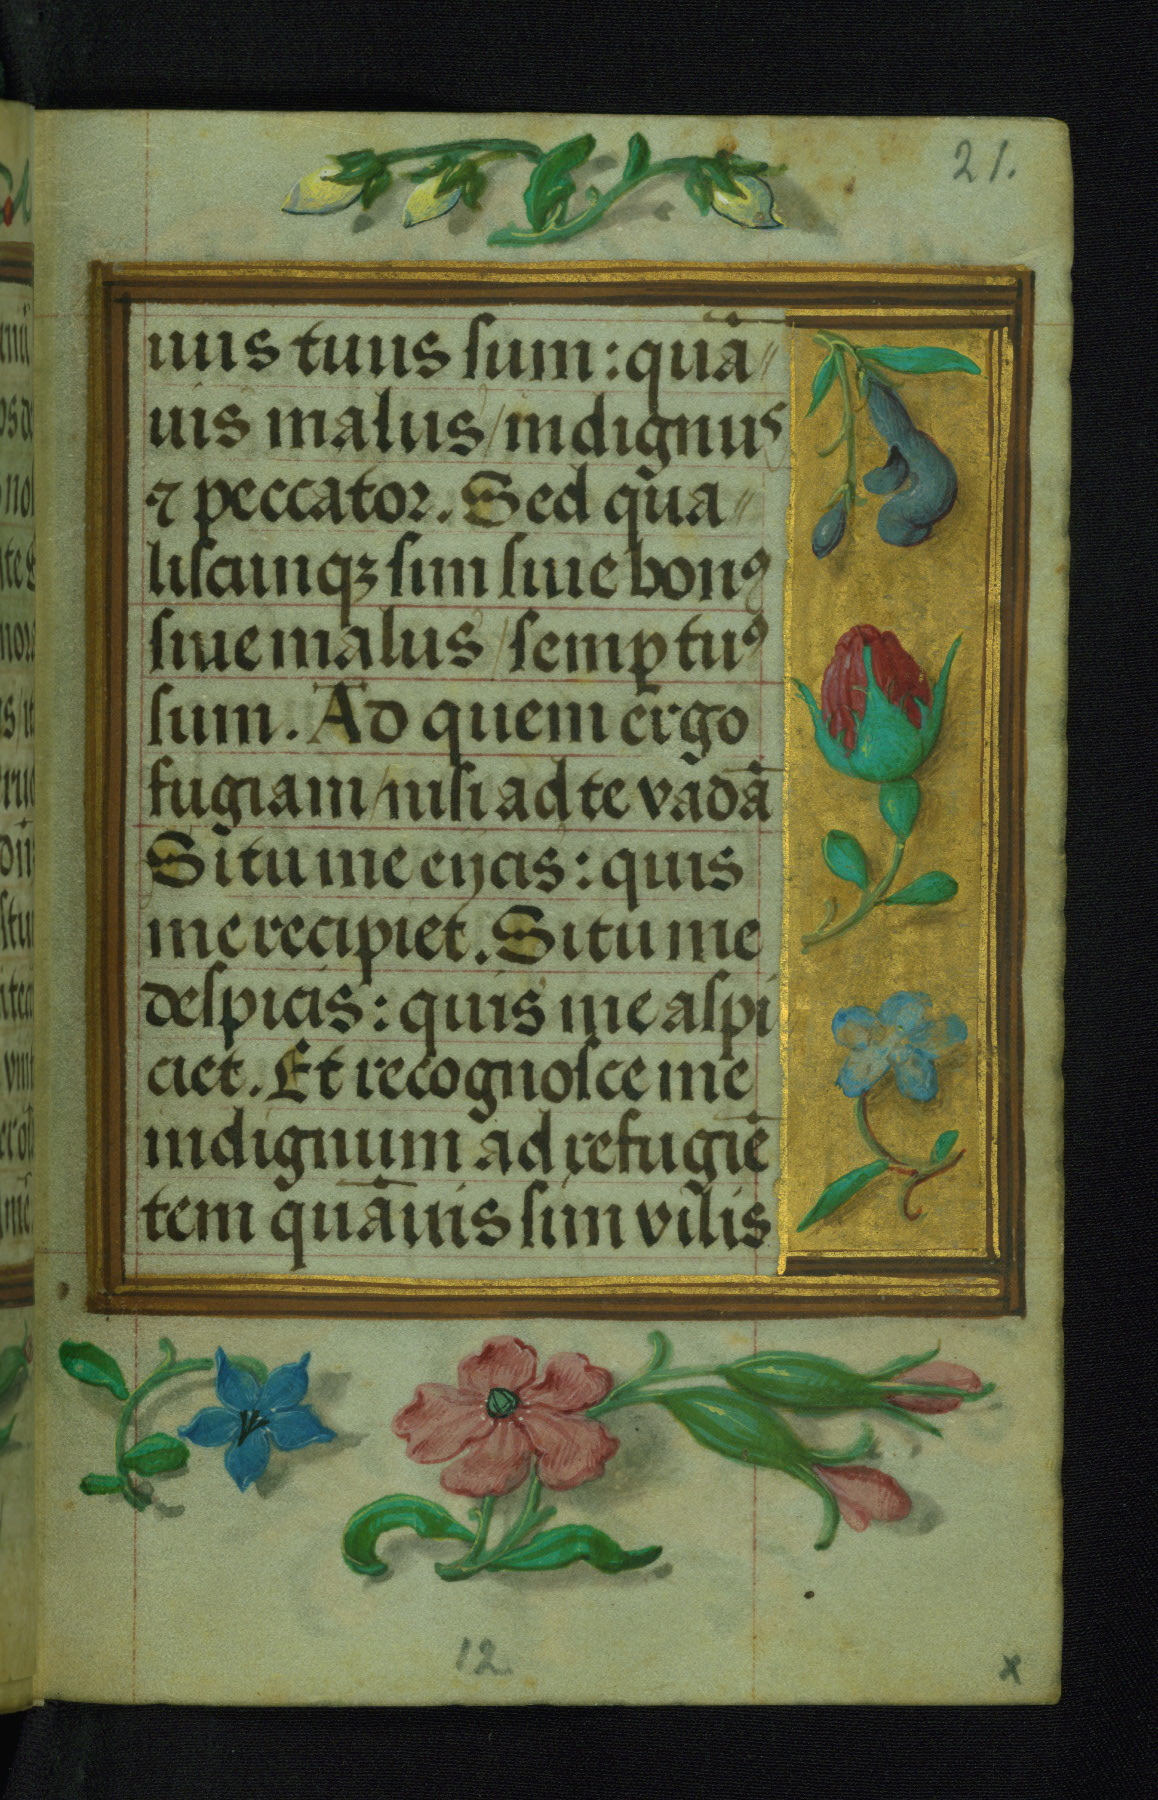 21.
uus tuus sum: quā〃
uis malus/ indignus
⁊ peccator. Sed qua〃
liscunqꝫ sim siue bonꝰ
siue malus/ semꝑ tuꝰ
sum. Ad quem ergo
fugiam/ nisi ad te vadā
Si tu me eijcis: quis
me recipiet. Si tu me
despicis: quis me aspi
ciet. Et recognosce me
indignum ad te fugiē
tem quāuis sim vilis
12
x